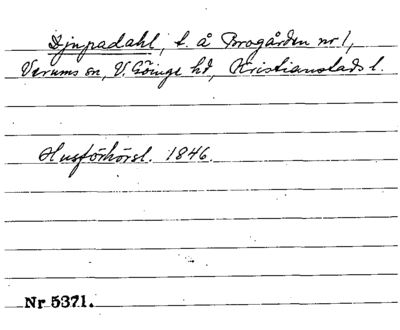 Djupadahl, t. å Brogården nr 1,
Verums sn, V. Göinge hd, Kristianstads l.
Husförhörsl. 1846.
Nr 5371.